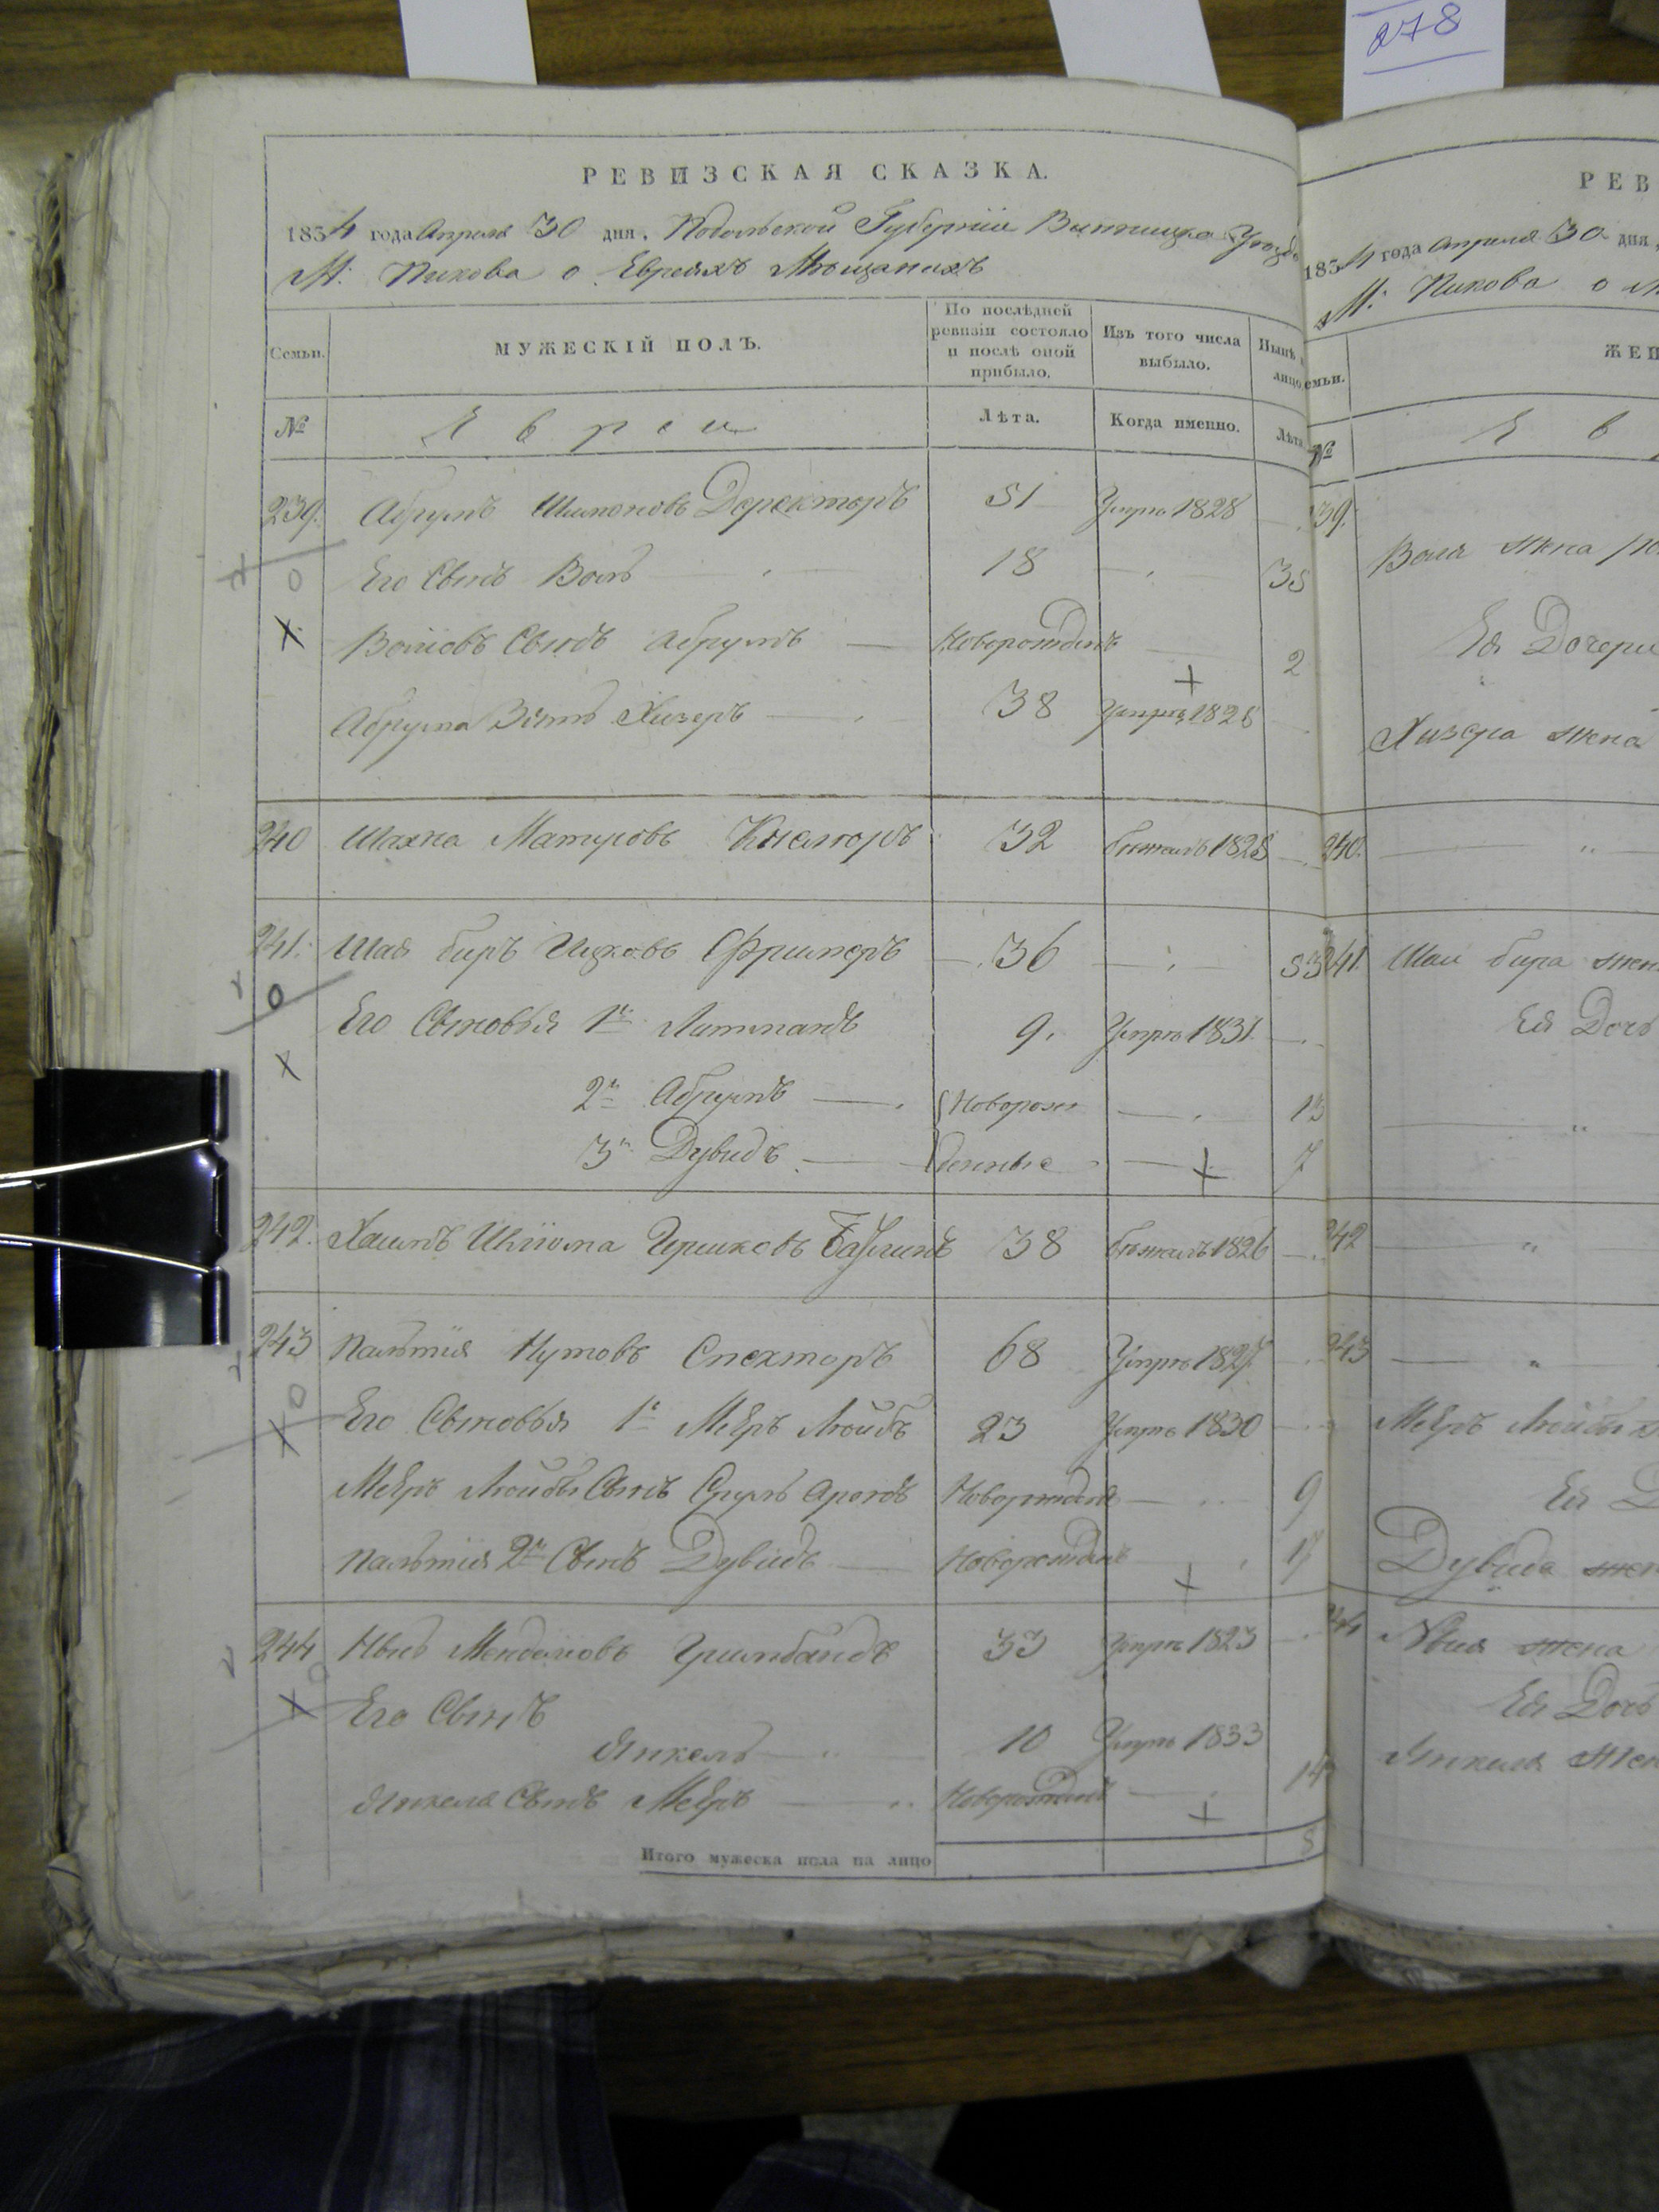 278
РЕВИЗСКАЯ СКАЗКА.
1834 года Апреля 30 дня. Подольской Губернiи Винницко Уѣзда
М: Пикова о Евреяхъ Мѣщанахъ
Семьи.
МУЖЕСКІЙ ПОЛЪ.
По послѣдней ревизіи состояло и послѣ оной прибыло.
Изъ того числа выбыло.
Нынѣ
лицо
№
Евреи
Лѣта.
Когда именно.
Лѣта
239. Абрумъ Шимоновъ 51 Умре 1828
Его Сынъ Вол 18 35
Волiовъ Сынъ Абрумъ Новорожденъ 2
Абрума Зять Хизеръ 38 Умре 1828
240 Шахна 32 бѣжалъ 1828
241. Шая биръ Ицковъ 36 53
Его Сыновья 1й Литманъ 9. Умре 1831
2й Абрумъ Новорож 13
3й Дувидъ денные 7
242. Хаимъ Шліома Гершковъ 38 бѣжалъ 1826
243 Пальтiя Нутовъ Спекторъ 68 Умре 1827
Его Сыновья 1й Меѣръ Лѣйбъ 23 Умре 1830
Меѣръ Лѣйбы Сынъ Сруль Аронъ Новорожденъ 9
Пальтiя 2й Сынъ Дувидъ Новорожденъ 17
244 Менделiовъ 33 Умре 1823
Его Сынъ
Янкель 10 Умре 1833
Янкеля Сынъ Меѣръ Новорожденъ 14
Итого мужеска пола на лицо 8
РЕВ
1834 года Апреля 30 дня
М: Пикова о
ЖЕН
семьи.
№
Ев
39.
Воля жена
Ея Дочери
Хизера жена
240.
241. Шаи бира жен
Ея Дочь
242
243
Меѣръ Лѣйбы
Ея Д
Дувида жен
244 жена
Ея Дочь
Янкеля жен